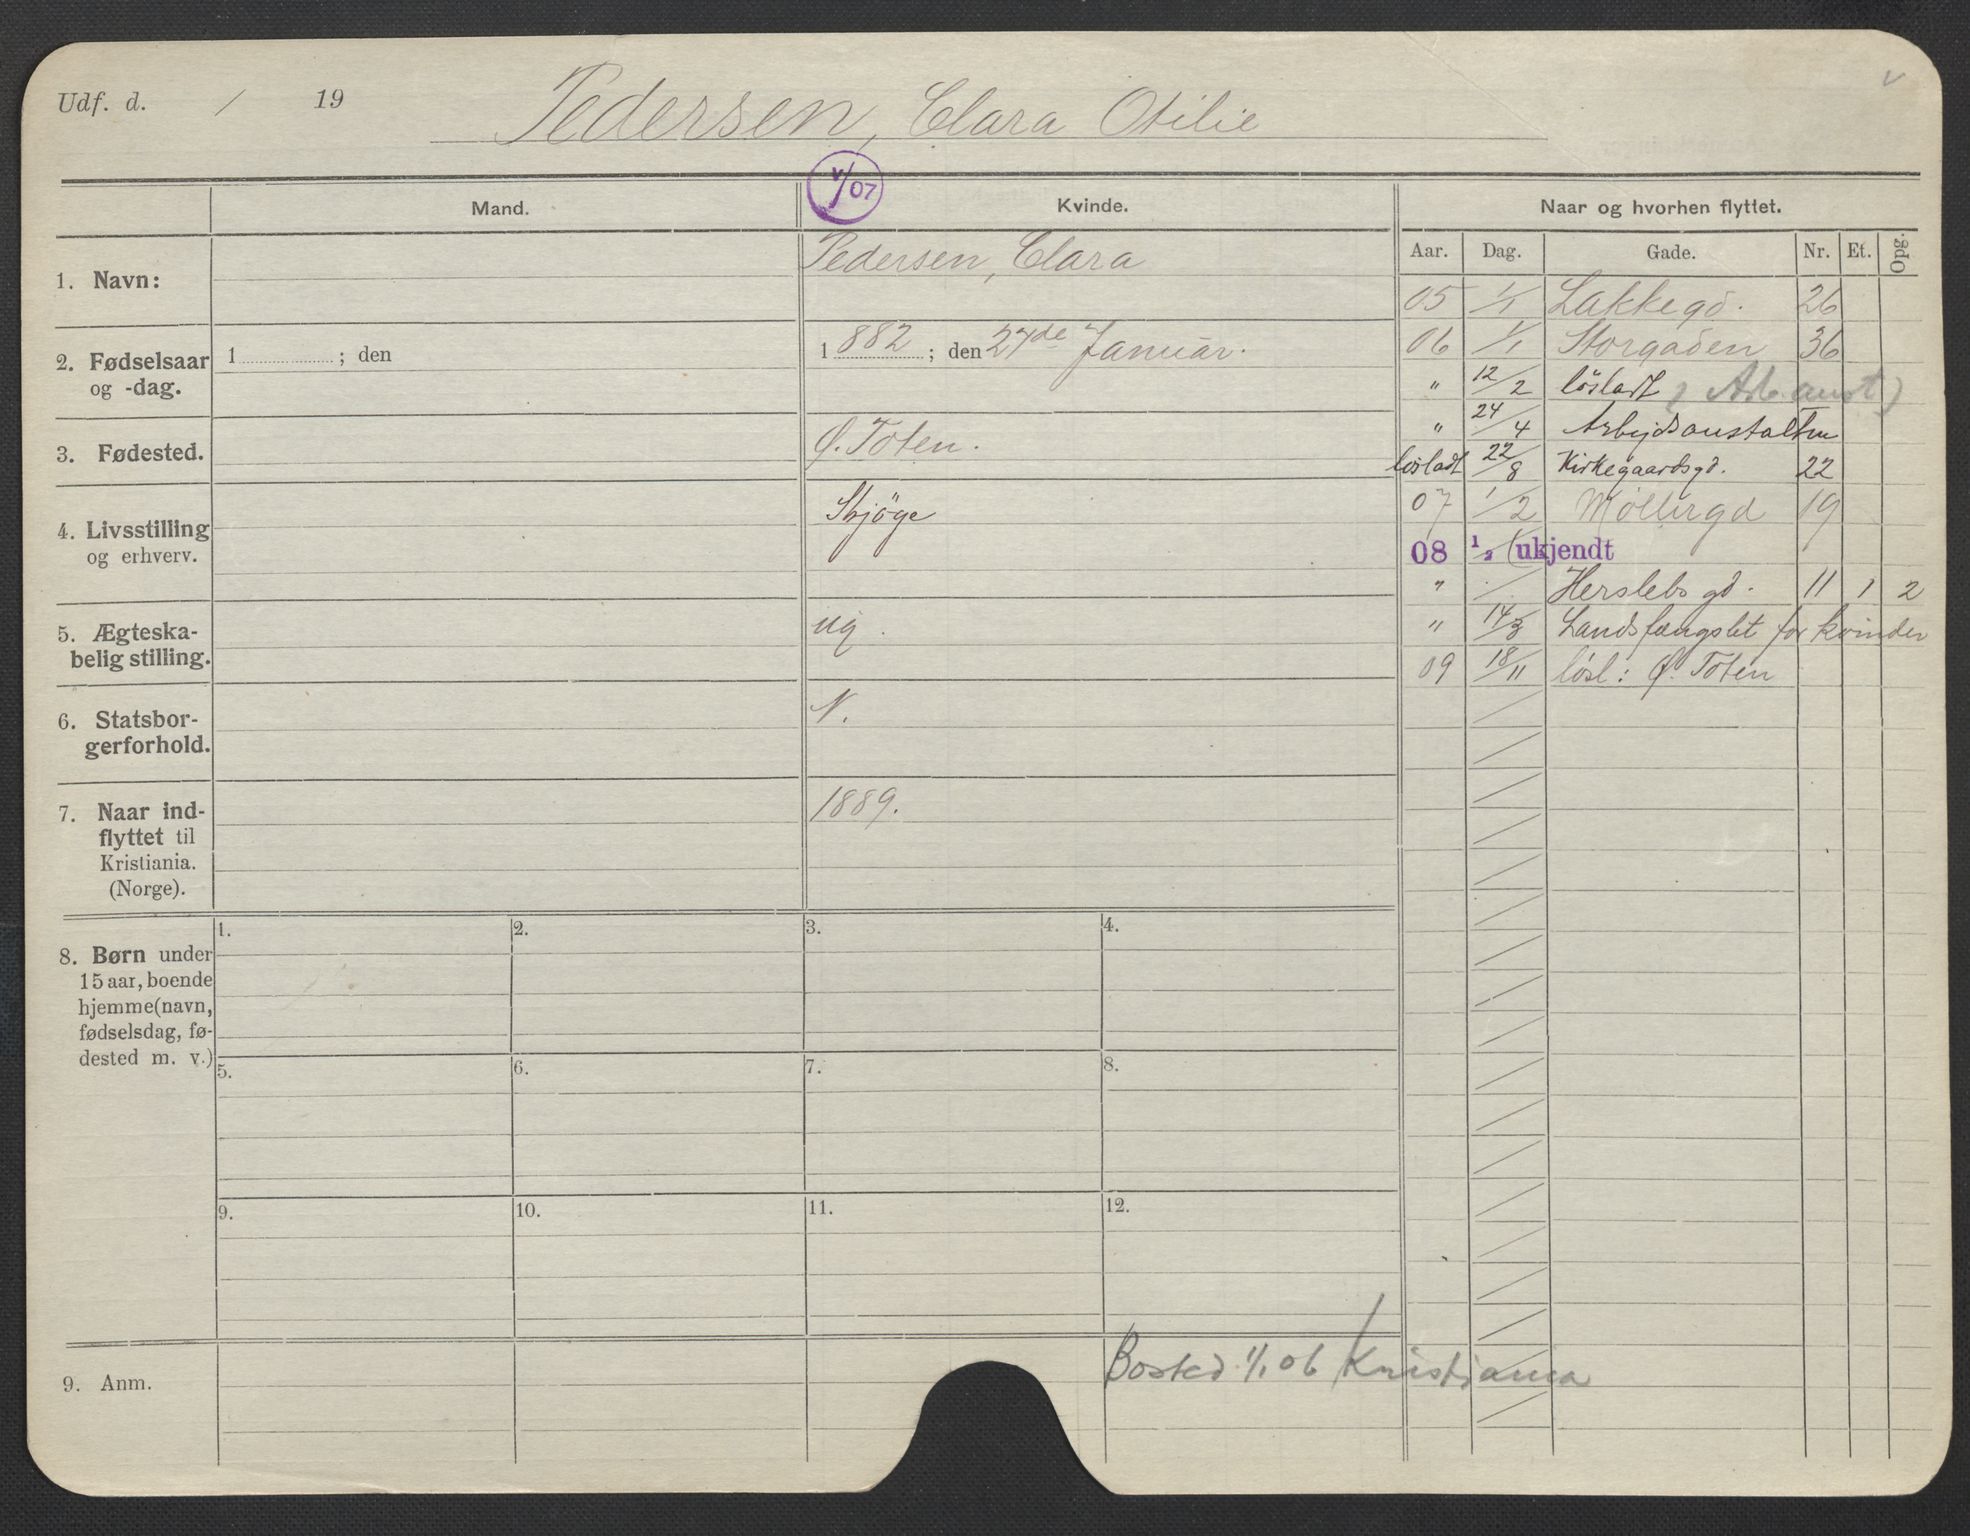 Udf. d. / 19
Pedersen, Clara Otilie
v/07
Mand.
Kvinde.
Naar og hvorhen flyttet.
Aar. Dag. Gade. Nr. Et. Opg.
1. Navn:
Pedersen, Clara
2. Fødselsaar
og -dag.
1 ; den
1882 ; den 27de Januar.
3. Fødested.
Ø. Toten.
4. Livsstilling
og erhverv.
Skjøge
5. Ægteska-
belig stilling.
ug.
6. Statsbor-
gerforhold.
N.
7. Naar ind-
flyttet til
Kristiania.
(Norge).
1889.
05 1/1 Lakkegd. 26
06 1/1 Storgaden 36
" 12/2 løsladt (Arb. anst)
" 24/4 Arbejdsanstalten
løsladt 22/8 Kirkegaardsgd. 22
07 1/2 Møllergd 19
08 1/2 (ukjendt
" / Herslebsgd. 11 1 2
" 14/3 Landsfængslet for kvinder
09 18/11 løsl: Ø. Toten
8. Børn under
15 aar, boende
hjemme (navn,
fødselsdag, fø-
dested m. v.)
1. 2. 3. 4.
5. 6. 7. 8.
9. 10. 11. 12.
9. Anm.
Bosted 1/1 06 Kristiania